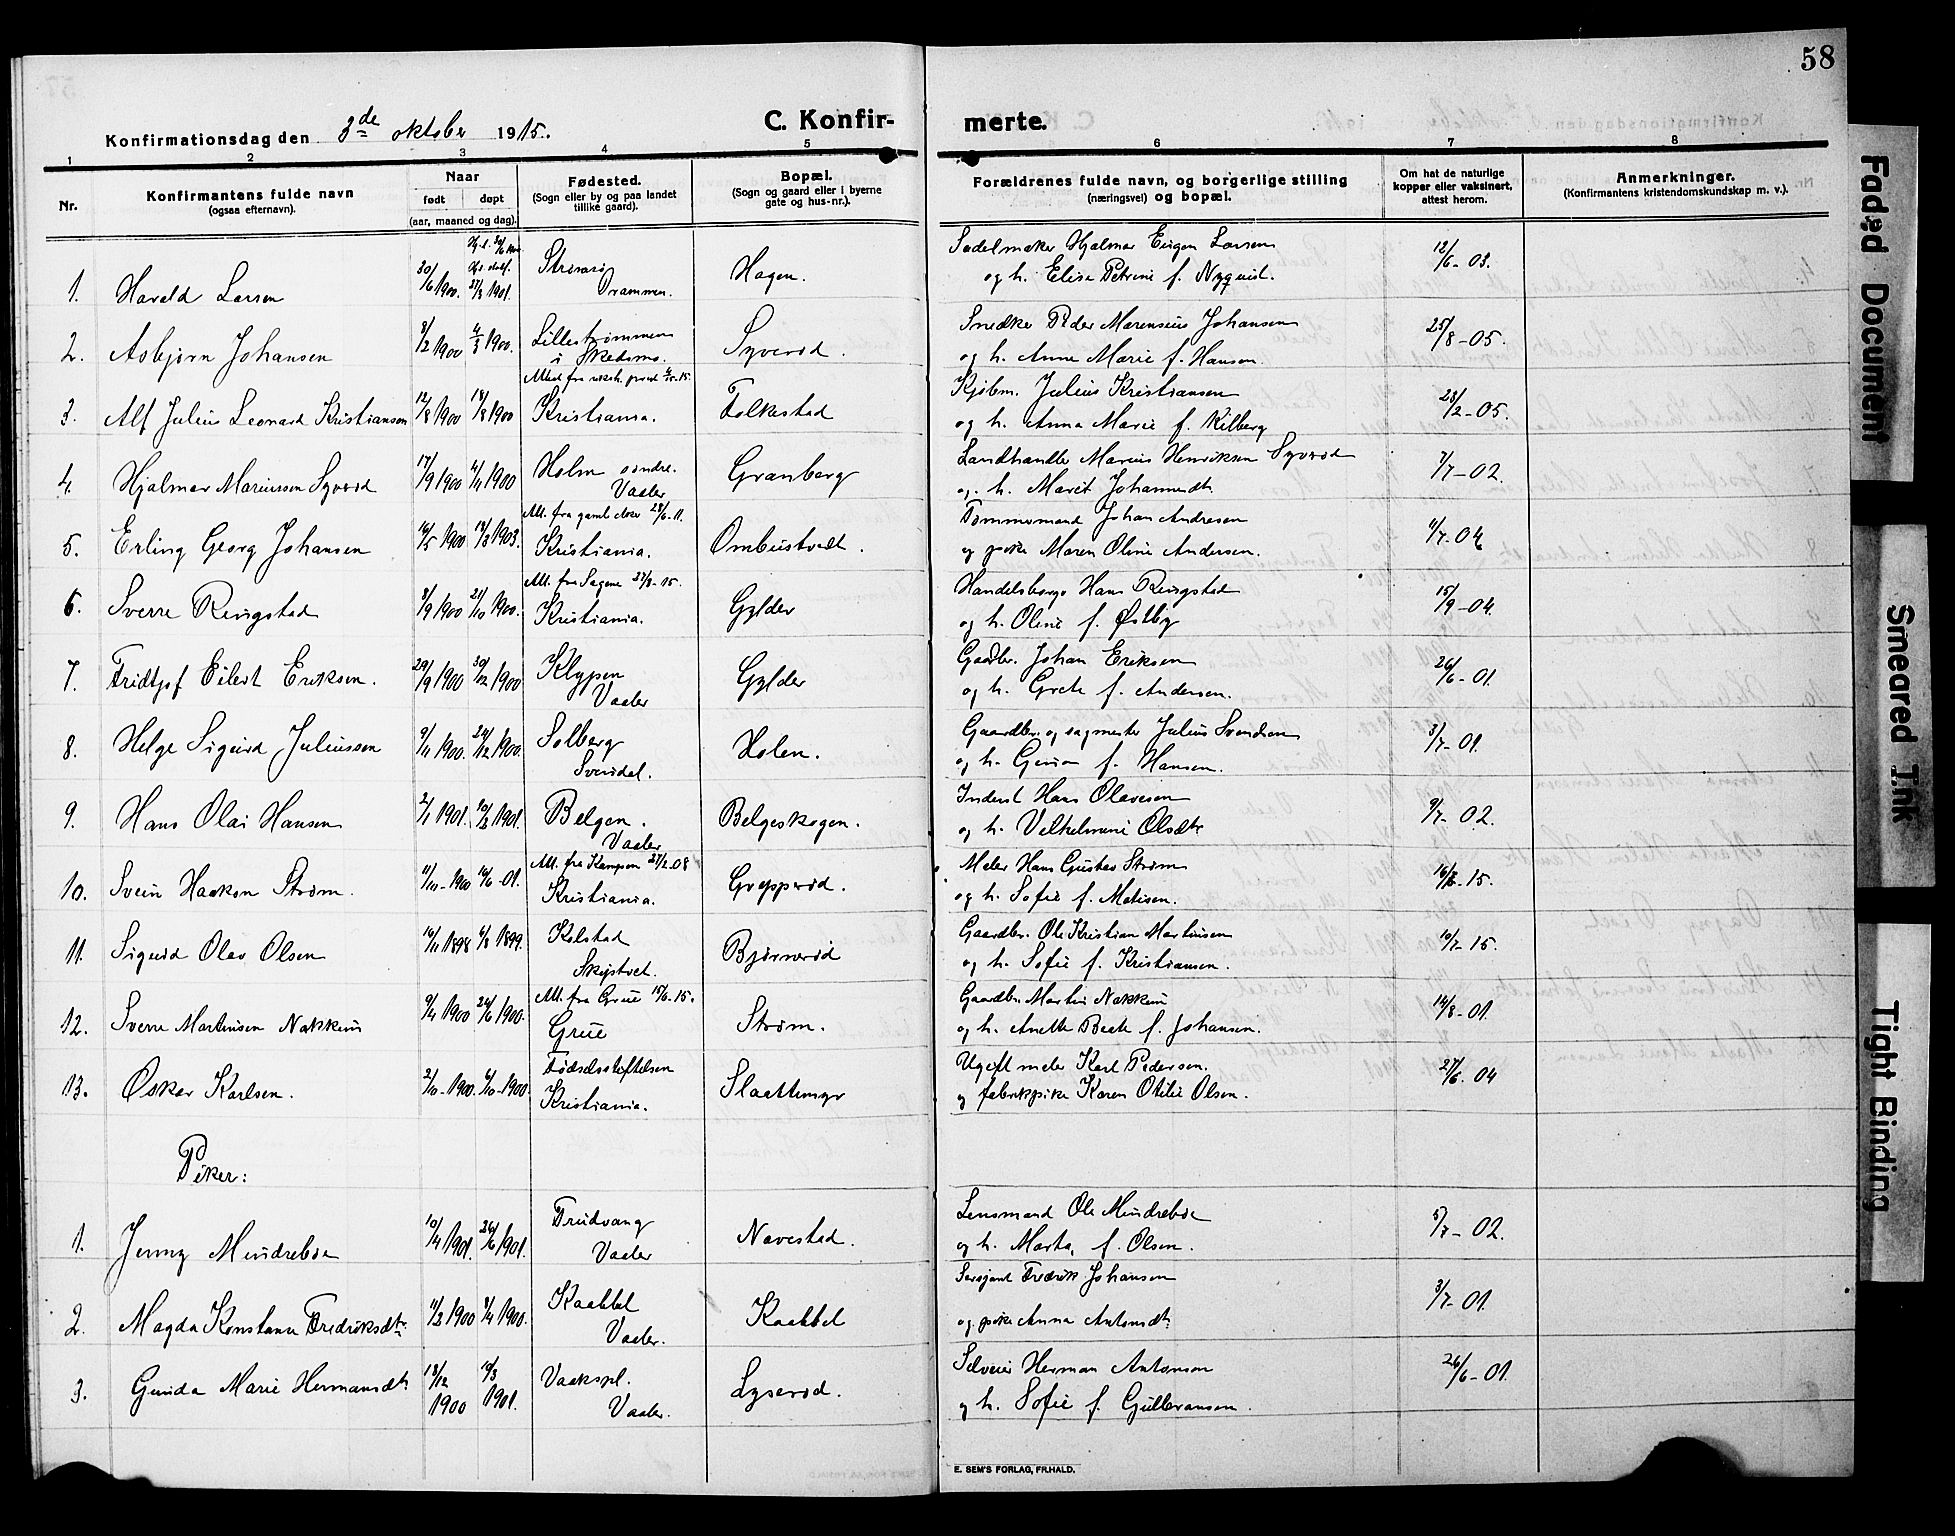 58
Konfirmationsdag den 3de oktober 1915.
C. Konfir-
merte.
1 2 3 4 5 6 7 8
Nr.
Konfirmantens fulde navn
(ogsaa efternavn).
Naar
født døpt
(aar, maaned og dag).
Fødested.
(Sogn eller by og paa landet
tillike gaard).
Bopæl.
(Sogn og gaard eller i byerne
gate og hus-nr.).
Forældrenes fulde navn, og borgerlige stilling
(næringsvei) og bopæl.
Om hat de naturlige
kopper eller vaksinert,
attest herom.
Anmerkninger.
(Konfirmantens kristendomskundskap m. v.).
1. Harald Larsen 30/6 1900. 1901. Drammen. Hagen.
Sadelmaker Hjalmar Eugen Larsen
og h. Elise Petrine f. Nyquist. 12/6-03.
2. Asbjørn Johansen 8/2 1900 4/3 1900. Lillestrømmen
i Skedsmo. Syverød.
Snedker Peder Marensius Johansen
og h. Anne Marie f. Hansen. 25/8-05.
3. Alf Julius Leonard Kristiansen 12/8 1900 18/8 1900 Kristiania. Folkestad
Kjøbm. Julius Kristiansen
og h. Anna Marie f. Kilberg 28/2-05.
4. Hjalmar Mariussen Syverød 17/9 1900 4/11 1900 Holm søndre.
Vaaler Granberg
Landhandler Marius Henriksen Syverød
og h. Marit Johannesdt. 7/7-02.
Att. fra gaml. Aker 28/6-11.
5. Erling Georg Johansen 16/5 1900 1903. Kristiania. Ombustvedt.
Tømmermand Johan Andresen
og pike Maren Oline Andersen. 4/7-04
Att. fra Sagene 27/8-15.
6. Sverre Ringstad 8/9 1900 21/10 1900. Kristiania. Gylder
Handelsborger Hans Ringstad
og h. Oline f. Østby 15/9-04.
7. Fridtjof Eilert Eriksen. 29/9 1900 30/12 1900 Klypen
Vaaler Gylder
Gaardbr. Johan Eriksen
og h. Grete f. Andersen. 26/6-01.
8. Helge Sigurd Juliussen 9/11 1900. 26/12 1900. Solberg
Svendal. Holen.
Gaardbr. og sagmester Julius Svendsen
og h. f. Hansen. 3/7-01.
9. Hans Olai Hansen 2/1 1901. 10/3 1901. Belgen.
Vaaler Belgeskogen.
Inderst Hans Olavesen
og h. Vilhelmine Olsdt. 9/7-02.
Att. fra Kampen 27/2.08
10. Svein Haakon Strøm. 11/10-1900 16/6-01. Kristiania. Grepperød.
Maler Hans Gustav Strøm
og h. Sofie f. Matisen. 16/8-15.
11. Sigurd Olav Olsen 16/11 1898 6/8 1899. Kolstad
Skiptvet. Bjørnerød
Gaardbr. Ole Kristian Martinsen
og h. Sofie f. Kristiansen. 10/7-15.
Att. fra Grue 15/6-15.
12. Sverre Martinsen Nakkum 9/4 1900 24/6 1900. Grue Strøm.
Gaardbr. Martin Nakkum
og h. Anette Beate f. Johansen. 14/8-01.
13. Oskar Karlsen. 2/10-1900. 6/10-1900. Fødselsstiftelsen
Kristiania. Slaattemyr
Ugift maler Karl Pedersen.
og fabrikpike Karen Otilie Olsen. 27/6.04
Piker:
1. Jenny Mindrebøe 10/4 1901. 26/6 1901. Trudvang
Vaaler Navestad.
Lensmand Ole Mindrebøe
og h. Marta, f. Olsen. 5/7-02.
2. Magda Konstance Fredriksdt. 11/2 1900 8/4 1900. Kaabbel
Vaaler. Kaabbel
Sersjant Fredrik Johansen
og pike Anna Antonsdt. 3/7-01.
3. Gunda Marie Hermansdt. 18/12
1900 10/3
1901. Vaakspl.
Vaaler. Lyserød.
Selveier Herman Antonsen
og h. Sofie f. Gulbransen. 26/6-01.
E. SEM'S FORLAG, FR.HALD.
Faded Document
Smeared Ink
Tight Binding